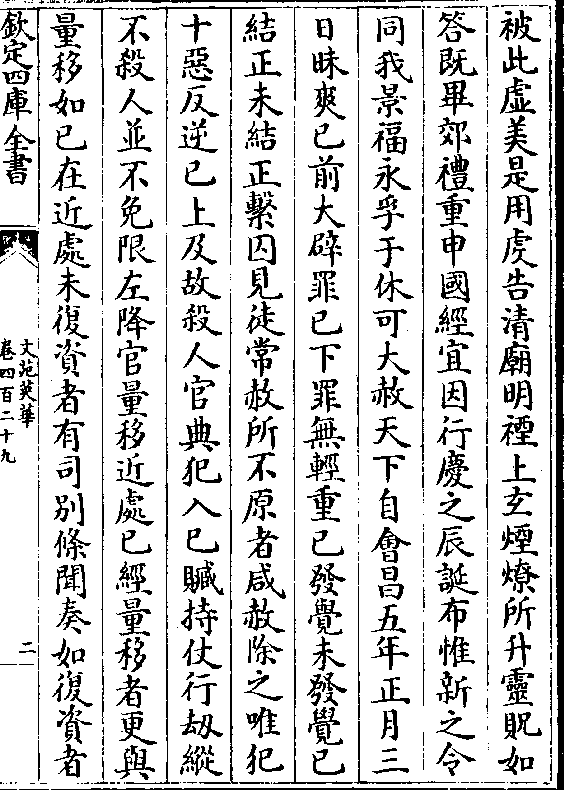 被此虚美是用虔告清廟明禋上玄煙燎所升靈貺如
答既畢郊禮重申國經宜因行慶之辰誕布惟新之令
同我景福永孚于休可大赦天下自會昌五年正月三
日昧爽已前大辟罪已下罪無輕重已發覺未發覺已
結正未結正繫囚見徒常赦所不原者咸赦除之唯犯
十惡反逆已上及故殺人官典犯入已贓持仗行刼縱
不殺人並不免限左降官量移近處已經量移者更與
量移如已在近處未復資者有司别條聞奏如復資者
欽定四庫全書
文苑英華
卷四百二十九
二